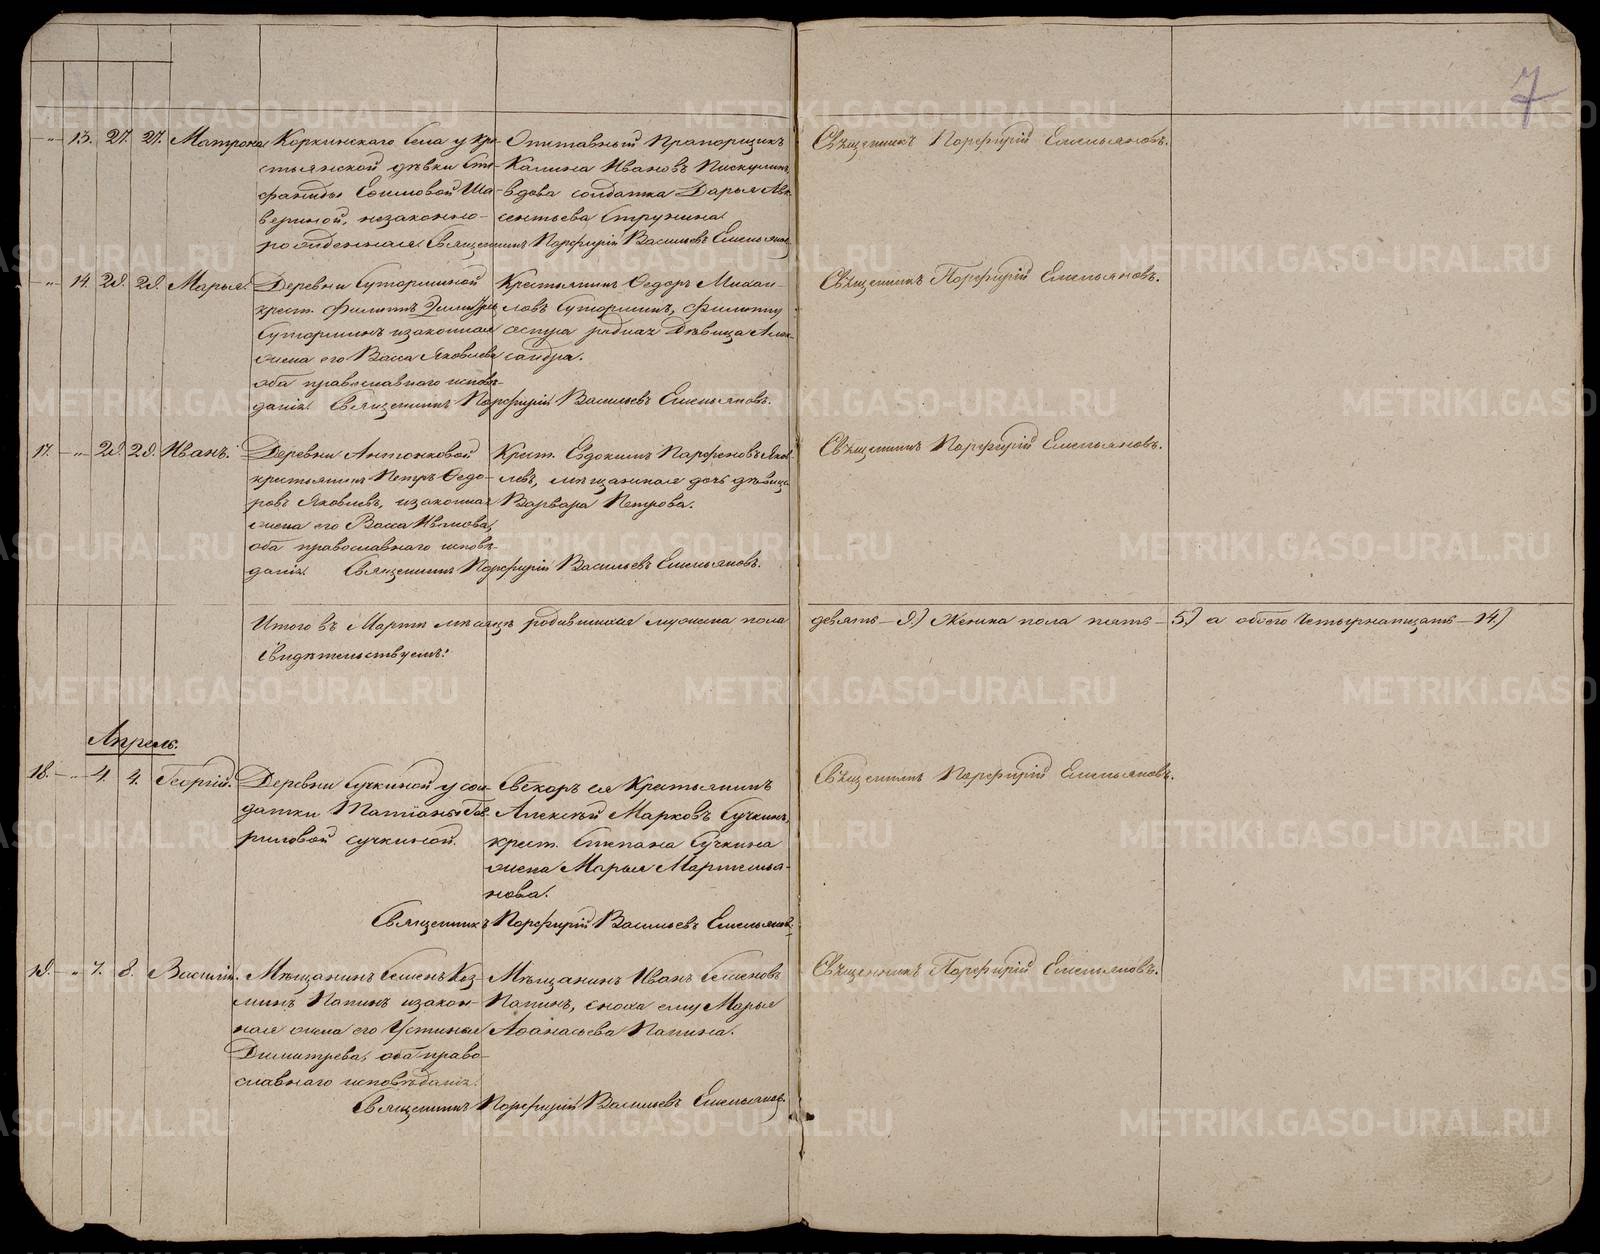 7
13. 27. 27. Матрона Коркинскаго села у кре-
стьянской дѣвки Сте-
фаниды Ефимовой Ша-
вериной, незаконно-
рожденная.
Отставный Прапорщикъ
Калина Ивановъ Пискулинъ,
вдова солдатка Дарья Ав-
сентьева Стружина.
Священникъ Порфирій Васильевъ Емельяновъ
Священникъ Порфирій Емельяновъ.
14. 28. 28. Марья Деревни Суторминой
крест. Филиппъ Димитріевъ
Суторминъ и законная
жена его Васса Яковлева
оба православнаго исповѣ-
данія.
Крестьянинъ Федоръ Михаи-
ловъ Суторминъ, Филиппу
сестра родная дѣвица Алек-
сандра.
Священникъ Порфирій Васильевъ Емельяновъ.
Священникъ Порфирій Емельяновъ.
17. 28. 28. Иванъ. Деревни Антонковой
крестьянинъ Петръ Федо-
ровъ Яковлевъ, и законная
жена его Васса Иванова,
оба православнаго исповѣ-
данія.
Крест. Евдокимъ Парфеновъ Яков-
левъ, мѣщанская дочь дѣвица
Варвара Петрова.
Священникъ Порфирій Васильевъ Емельяновъ.
Священникъ Порфирій Емельяновъ.
Итого въ Мартѣ мѣсяцѣ родившихся мужеска пола девять – 9.) Женска пола пять – 5.) а обоего Четырнатцать – 14.)
Свидѣтельствуемъ:
Апрель.
18. 4. 4. Георгій. Деревни Сучкиной у сол-
датки Татіаны Гав-
риловой Сучкиной.
Свекоръ ея Крестьянинъ
Алексѣй Марковъ Сучкинъ,
крест. Степана Сучкина
жена Марья Мартемья-
нова.
Священникъ Порфирій Васильевъ Емельяновъ.
Священникъ Порфирій Емельяновъ.
19. 7. 8. Василій. Мѣщанинъ Семенъ Коз-
минъ Папинъ и закон-
ная жена его Устинья
Димитрева, оба право-
славнаго исповѣданія.
Мѣщанинъ Иванъ Семеновъ
Папинъ, сноха ему Марья
Афанасьева Папина.
Священникъ Порфирій Васильевъ Емельяновъ.
Священникъ Порфирій Емельяновъ.
METRIKI.GASO-URAL.RU